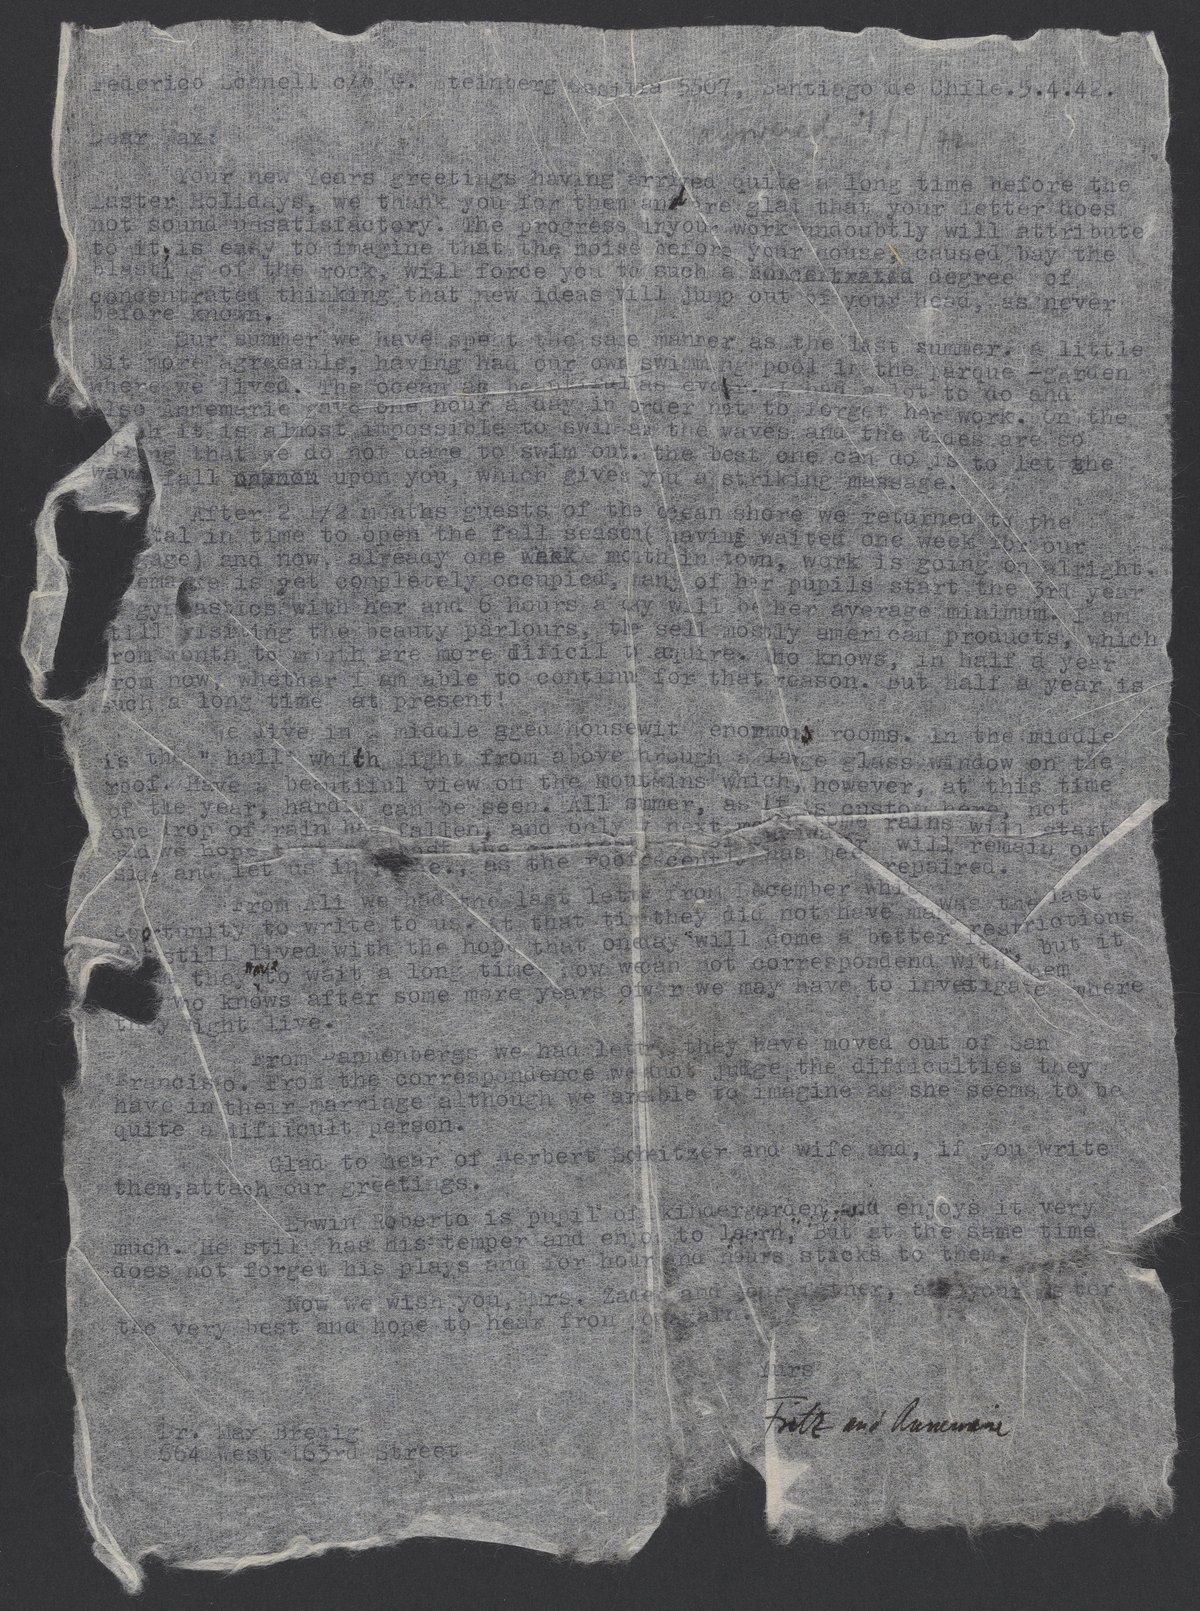 Federico c/o G. Steinberg Casilla 5507, Santiago de Chile.5.4.42.
Dear Max:
Your new Years greetings having arrived quite a long time before the
Easter Holidays, we thank you for them and are glad that your letter does
not sound unsatisfactory. The progress in your work undoubtly will attribute
to it, is easy to imagine that the noise before your house, caused bay the
blasting of the rock, will force you to such a degree of
concentrated thinking that new ideas will jump out of your head, as never
before known.
Our summer we have spent the same manner as the last summer. a little
bit more agreeable, having had our own swimming pool in the parque -garden
where we lived. The ocean as beautiful as ever. I had a lot to do and
also Annemarie gave one hour a day in order not to forget her work. On the
it is almost impossible to swim as the waves and the tides are so
strong that we do not dare to swim out. the best one can do is to let the
waves fall upon you, which gives you a striking massage.
After 2 1/2 months guests of the ocean shore we returned to the
tal in time to open the fall season( having waited one week for our
age) and now, already one week month in town, work is going on alright.
emarie is yet completely occupied, many of her pupils start the 3rd year
gymnastics with her and 6 Hours a day will be her average minimum. I am
till visiting the beauty parlours, the sell mostly american products, which
rom month to month are more dificil to aquire. Who knows, in half a year
rom now, whether I am able to continu for that reason. But half a year is
such a long time at present!
We live in a middle aged house wit enormous rooms. In the middle
is the " hall" which light from above through a large glass window on the
roof. Have a beautiful view on the mountains which, however, at this time
of the year, hardly can be seen. All summer, as it is custom here, not
one drop of rain has fallen, and only next rains will start
and we hope will remain out
side and let us in , as the roof recently has been repaired.
From Ali we had the last letter from December which was the last
oportunity to write to us. At that time they did not have many restrictions
still lived with the hope that one day will come a better , but it
they have to wait a long time. Now we can not correspondend with them
who knows after some more years over we may have to investigate where
they might live.
From Dannenbergs we had letter, they have moved out of San
Francisco. From the correspondence we not judge the difficulties they
have in their marriage although we are able to imagine as she seems to be
quite a difficult person.
Glad to hear of Herbert and wife and, if you write
them,attach our greetings.
Erwin Roberto is pupil of kindergarden and enjoys it very
much. He still has his temper and enjoy to learn, But at the same time
does not forget his plays and for hours and hours sticks to them.
Now we wish you, Mrs. and
the very best and hope to hear from again.
Yurs
Fritz and Annemarie
Dr. Max Brenig
664 West 163rd Street